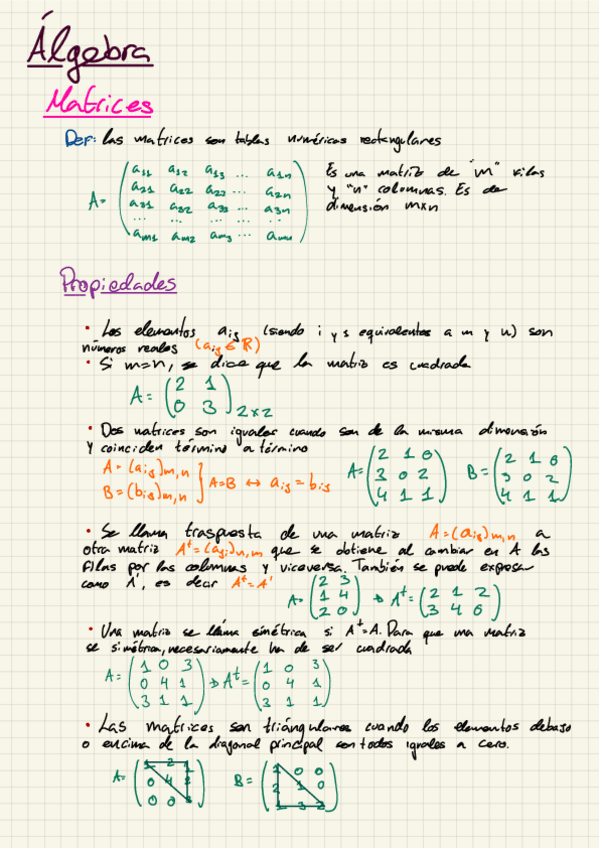 Álgebra
Matrices
Def: Las matrices son tablas numéricas rectangulares
A= ( a11 a12 a13 ... a1n
a21 a22 a23 ... a2n
a31 a32 a33 ... a3n
... ... ... ... ...
am1 am2 am3 ... amn )
Es una matriz de "m" filas
y "n" columnas. Es de
dimensión mxn
Propiedades
• Los elementos aij (siendo i y j equivalentes a m y n) son
números reales (aij ∈ R)
• Si m=n, se dice que la matriz es cuadrada
A= ( 2 1
0 3 ) 2x2
• Dos matrices son iguales cuando son de la misma dimensión
y coinciden término a término
A=(aij)m,n
B=(bij)m,n } A=B ↔ aij=bij
A= ( 2 1 0
3 0 2
4 1 1 )
B= ( 2 1 0
3 0 2
4 1 1 )
• Se llama traspuesta de una matriz A=(aij)m,n a
otra matriz At=(aji)n,m que se obtiene al cambiar en A las
filas por las columnas y viceversa. También se puede expresar
como A', es decir At=A'
A= ( 2 3
1 4
2 0 ) → At= ( 2 1 2
3 4 0 )
• Una matriz se llama simétrica si At=A. Para que una matriz
se simétrica, necesariamente ha de ser cuadrada
A= ( 1 0 3
0 4 1
3 1 1 ) → At= ( 1 0 3
0 4 1
3 1 1 )
• Las matrices son triángulares cuando los elementos debajo
o encima de la diagonal principal son todos iguales a cero.
A= ( 1 2 1
0 4 2
0 0 3 )
B= ( 1 0 0
2 1 0
1 3 2 )